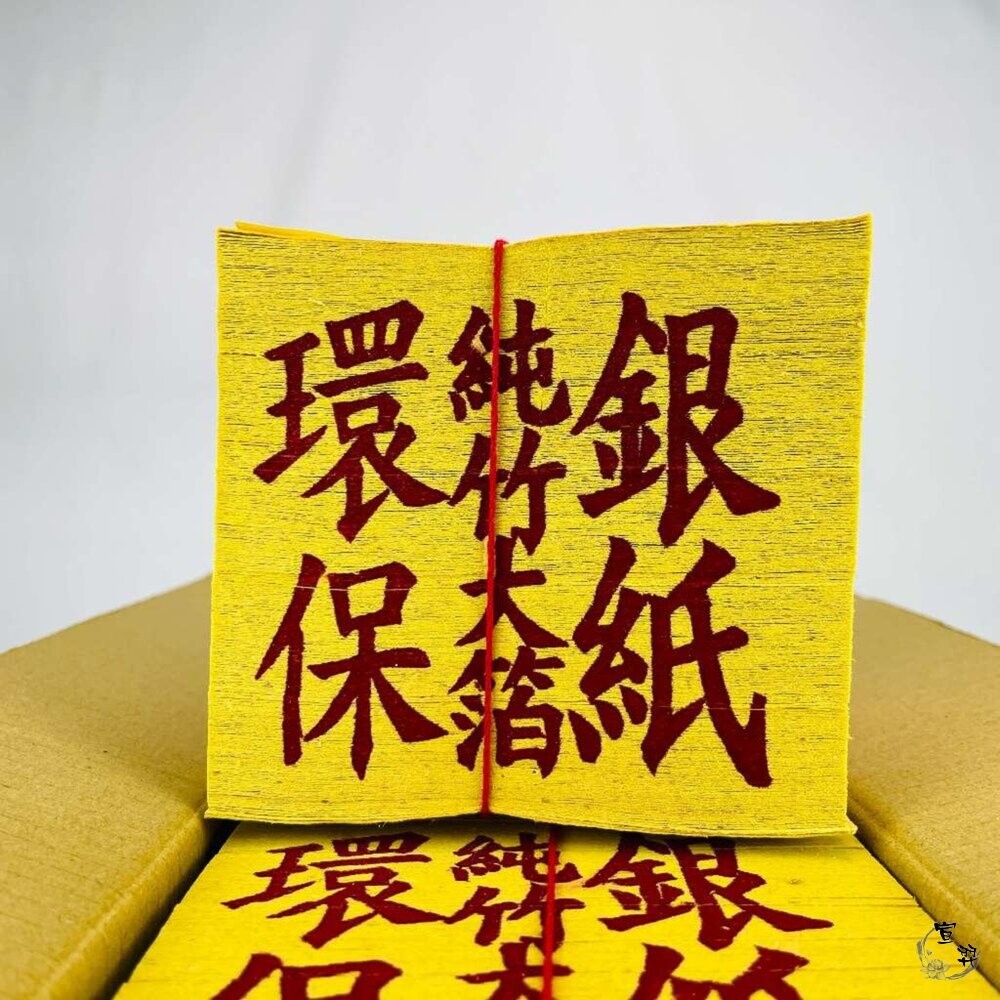 環保
純竹大箔
銀紙
環保
純竹大
銀紙
宣羿